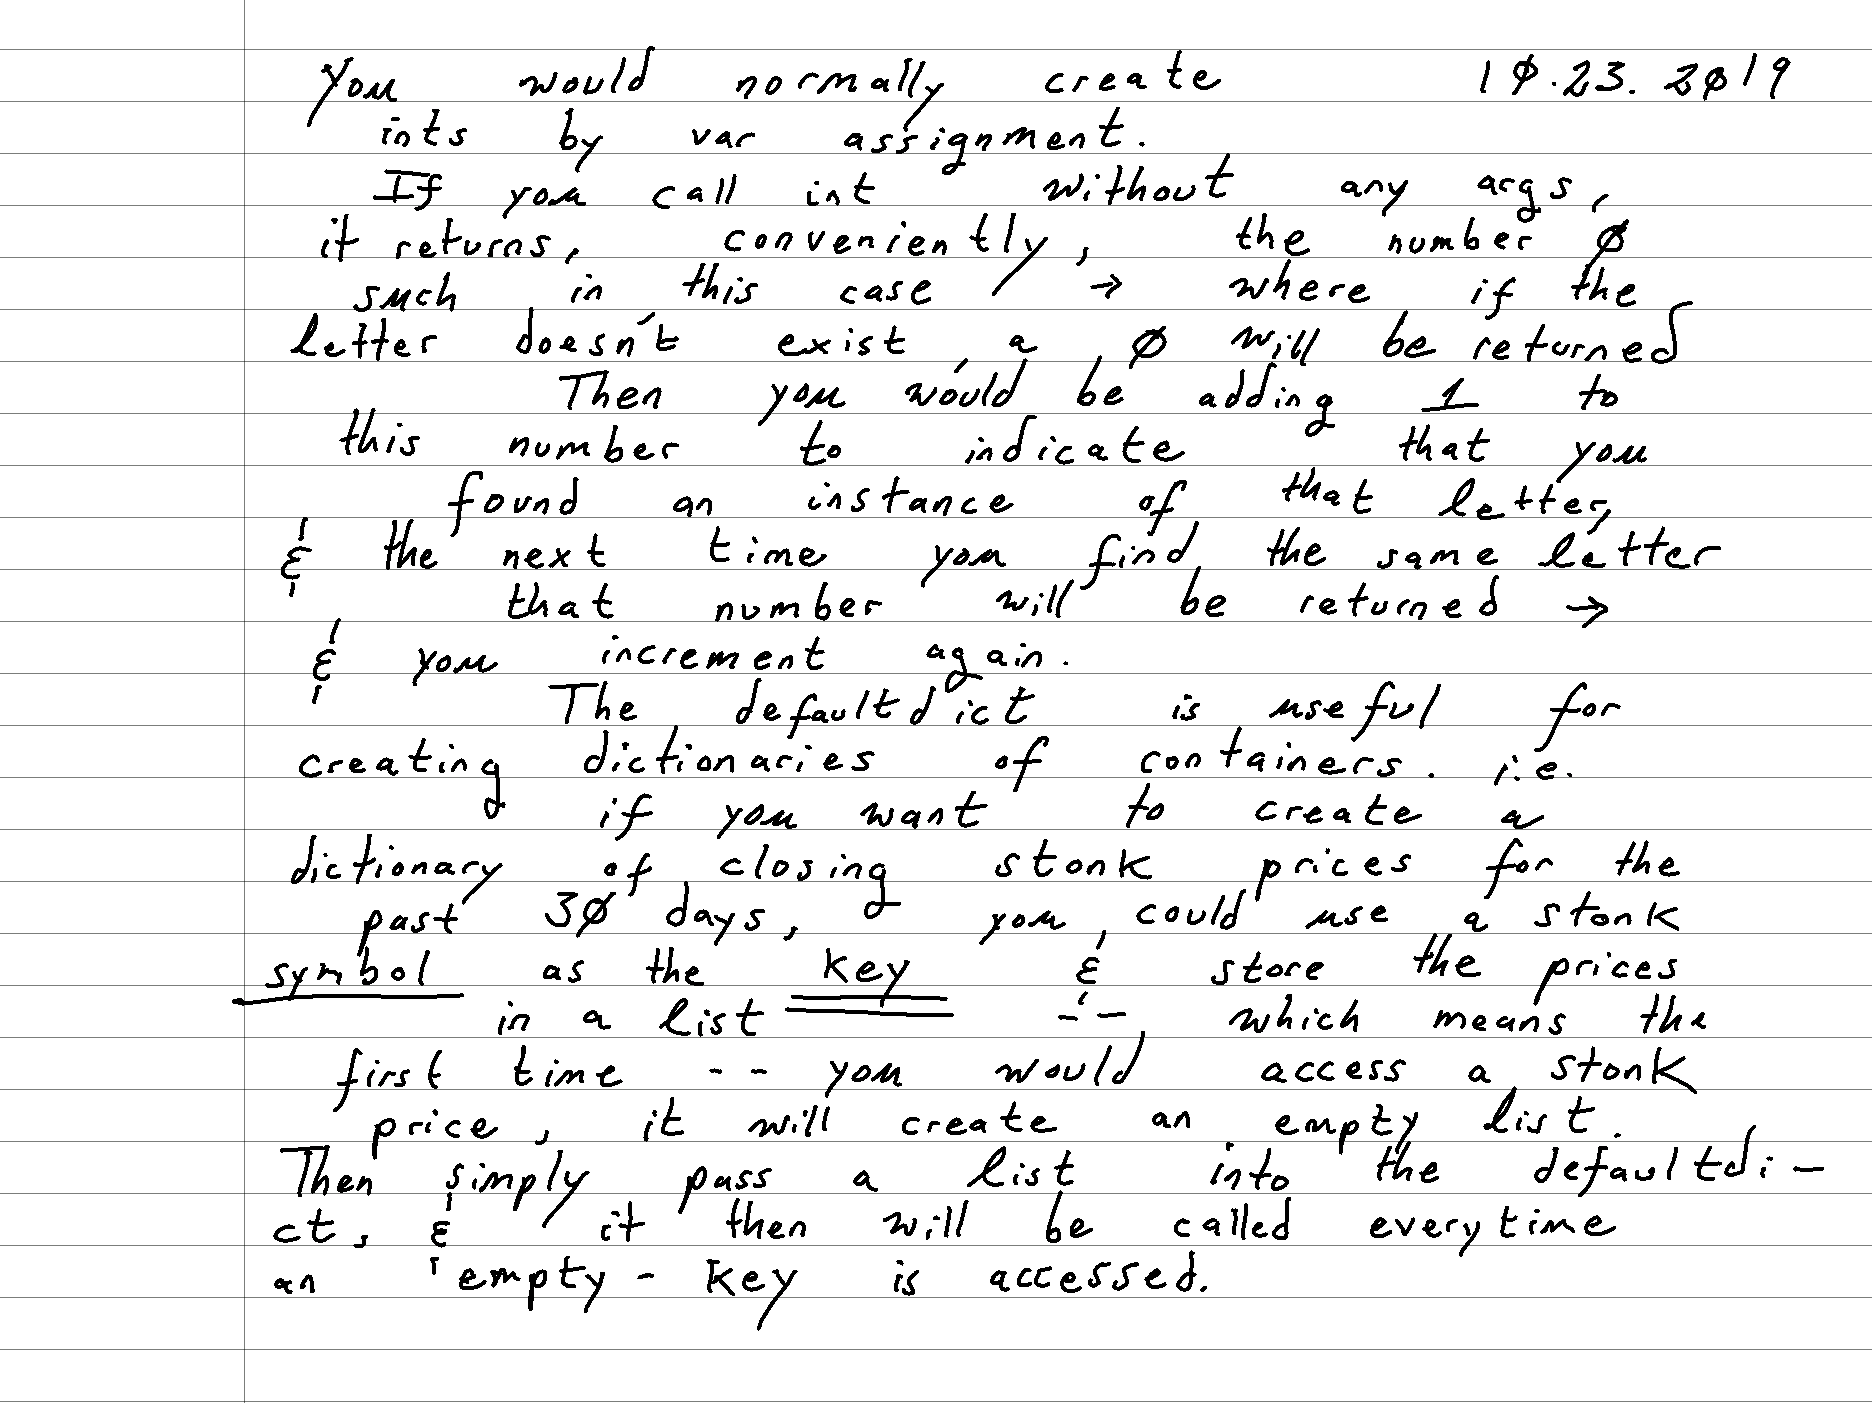 You would normally create 10.23.2019
ints by var assignment.
If you call int without any args,
it returns, conveniently, the number 0
such in this case / → where if the
letter doesn't exist, a 0 will be returned
Then you would be adding 1 to
this number to indicate that you
found an instance of that letter,
& the next time you find the same letter
that number will be returned →
& you increment again.
The defaultdict is useful for
creating dictionaries of containers. i.e.
if you want to create a
dictionary of closing stonk prices for the
past 30 days, you could use a stonk
symbol as the key & store the prices
in a list -- which means the
first time -- you would access a stonk
price, it will create an empty list.
Then simply pass a list into the defaultdi-
ct, & it then will be called everytime
an empty-key is accessed.